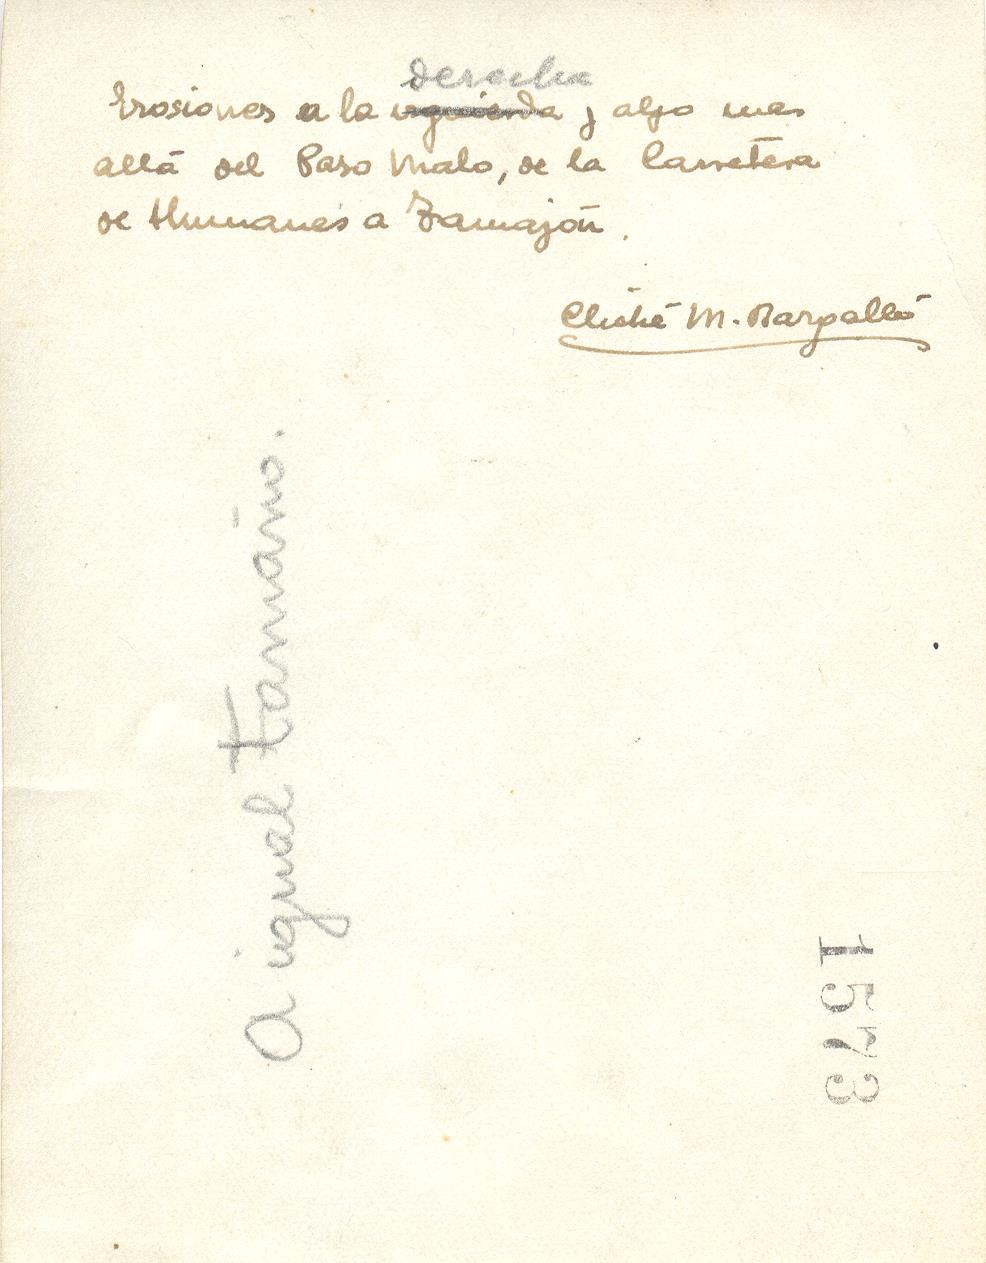 derecha
Erosiones a la izquierda y algo mas
allá del Paso Malo, de la Carretera
de Humanes a Tamajón.
Cliché M. Bargalló
A igual tamaño.
1573